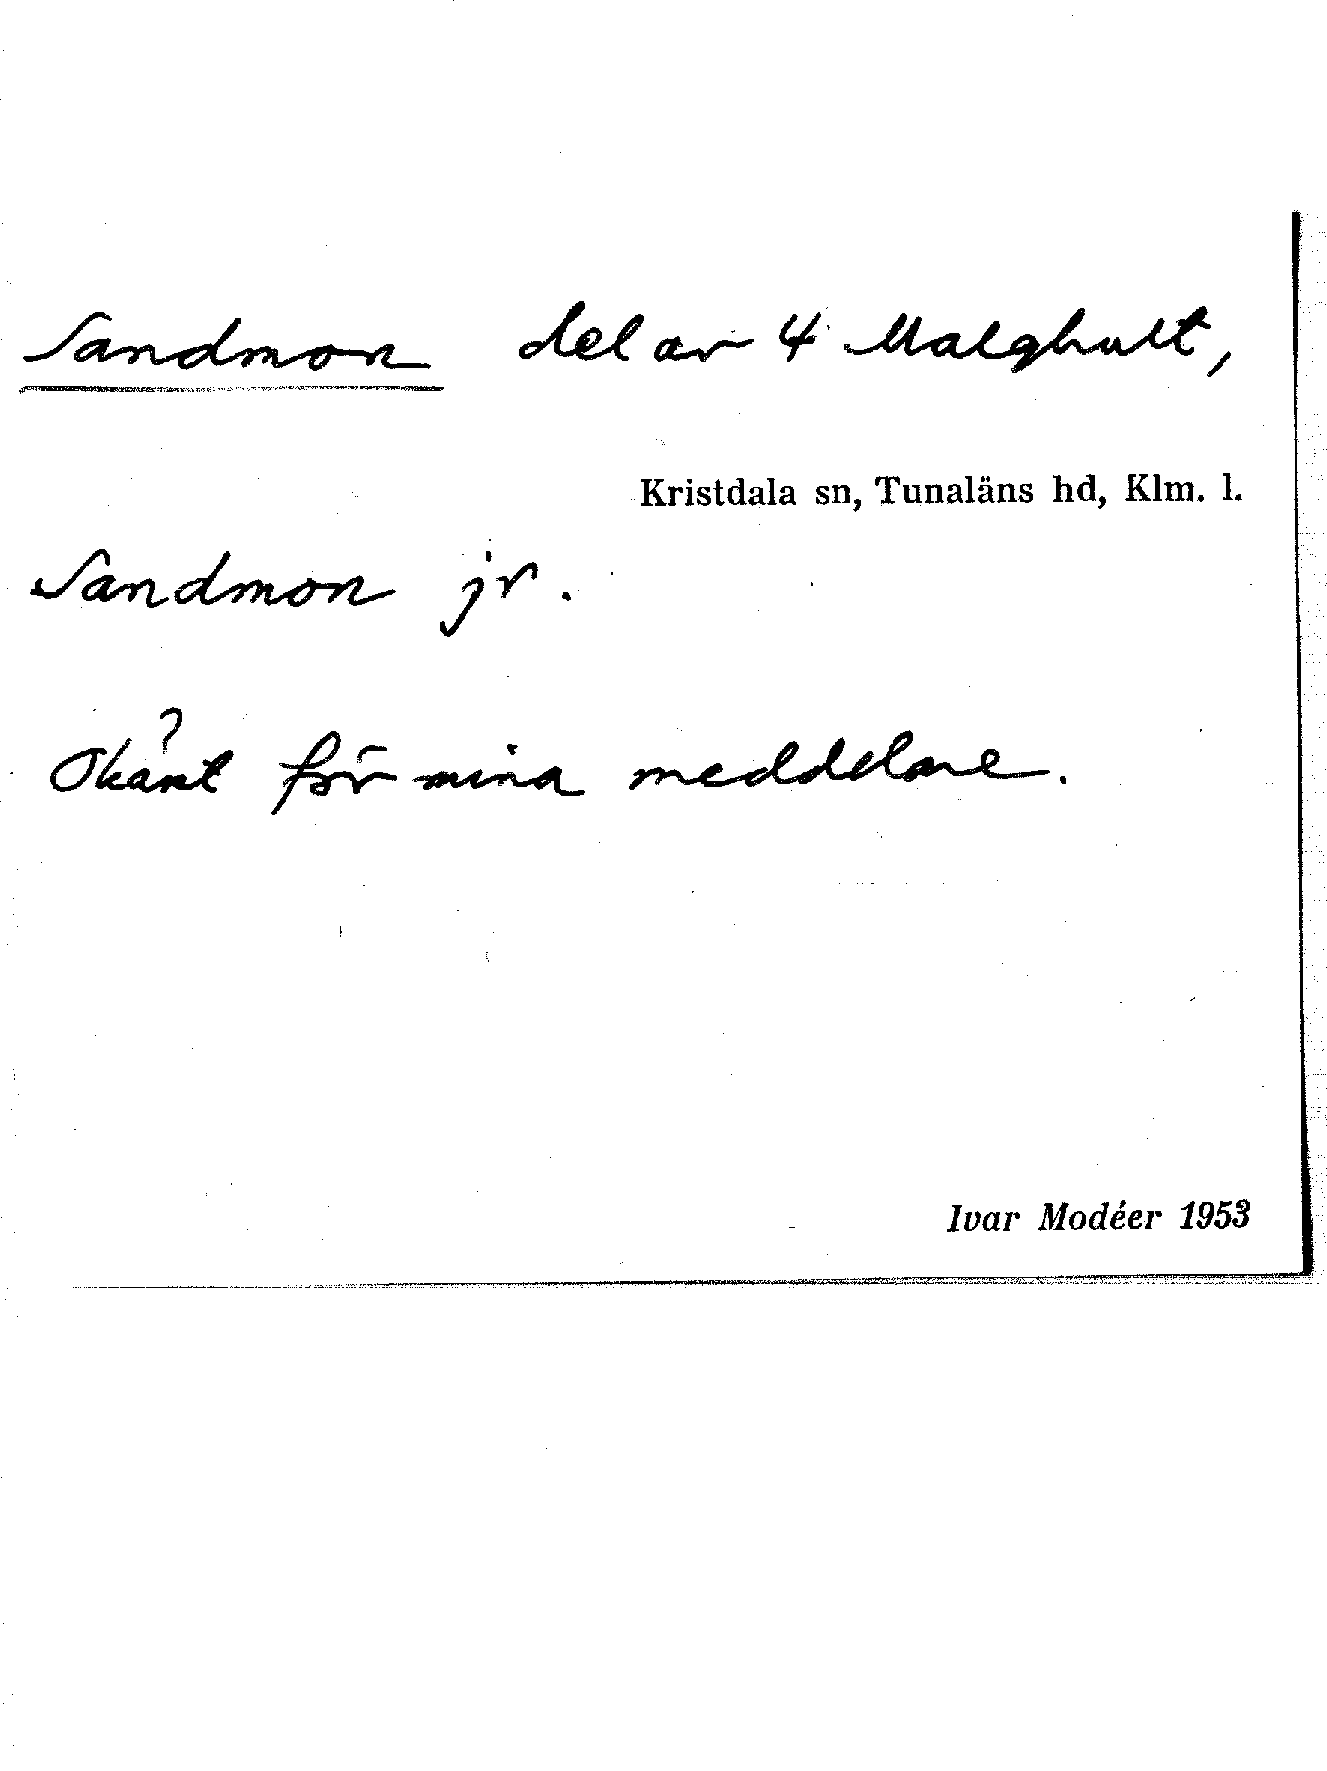 Sandmon del av 4 Malghult,
Kristdala sn, Tunaläns hd, Klm. l.
Sandmon jr.
?
Okänt för mina meddelare.
Ivar Modéer 1953